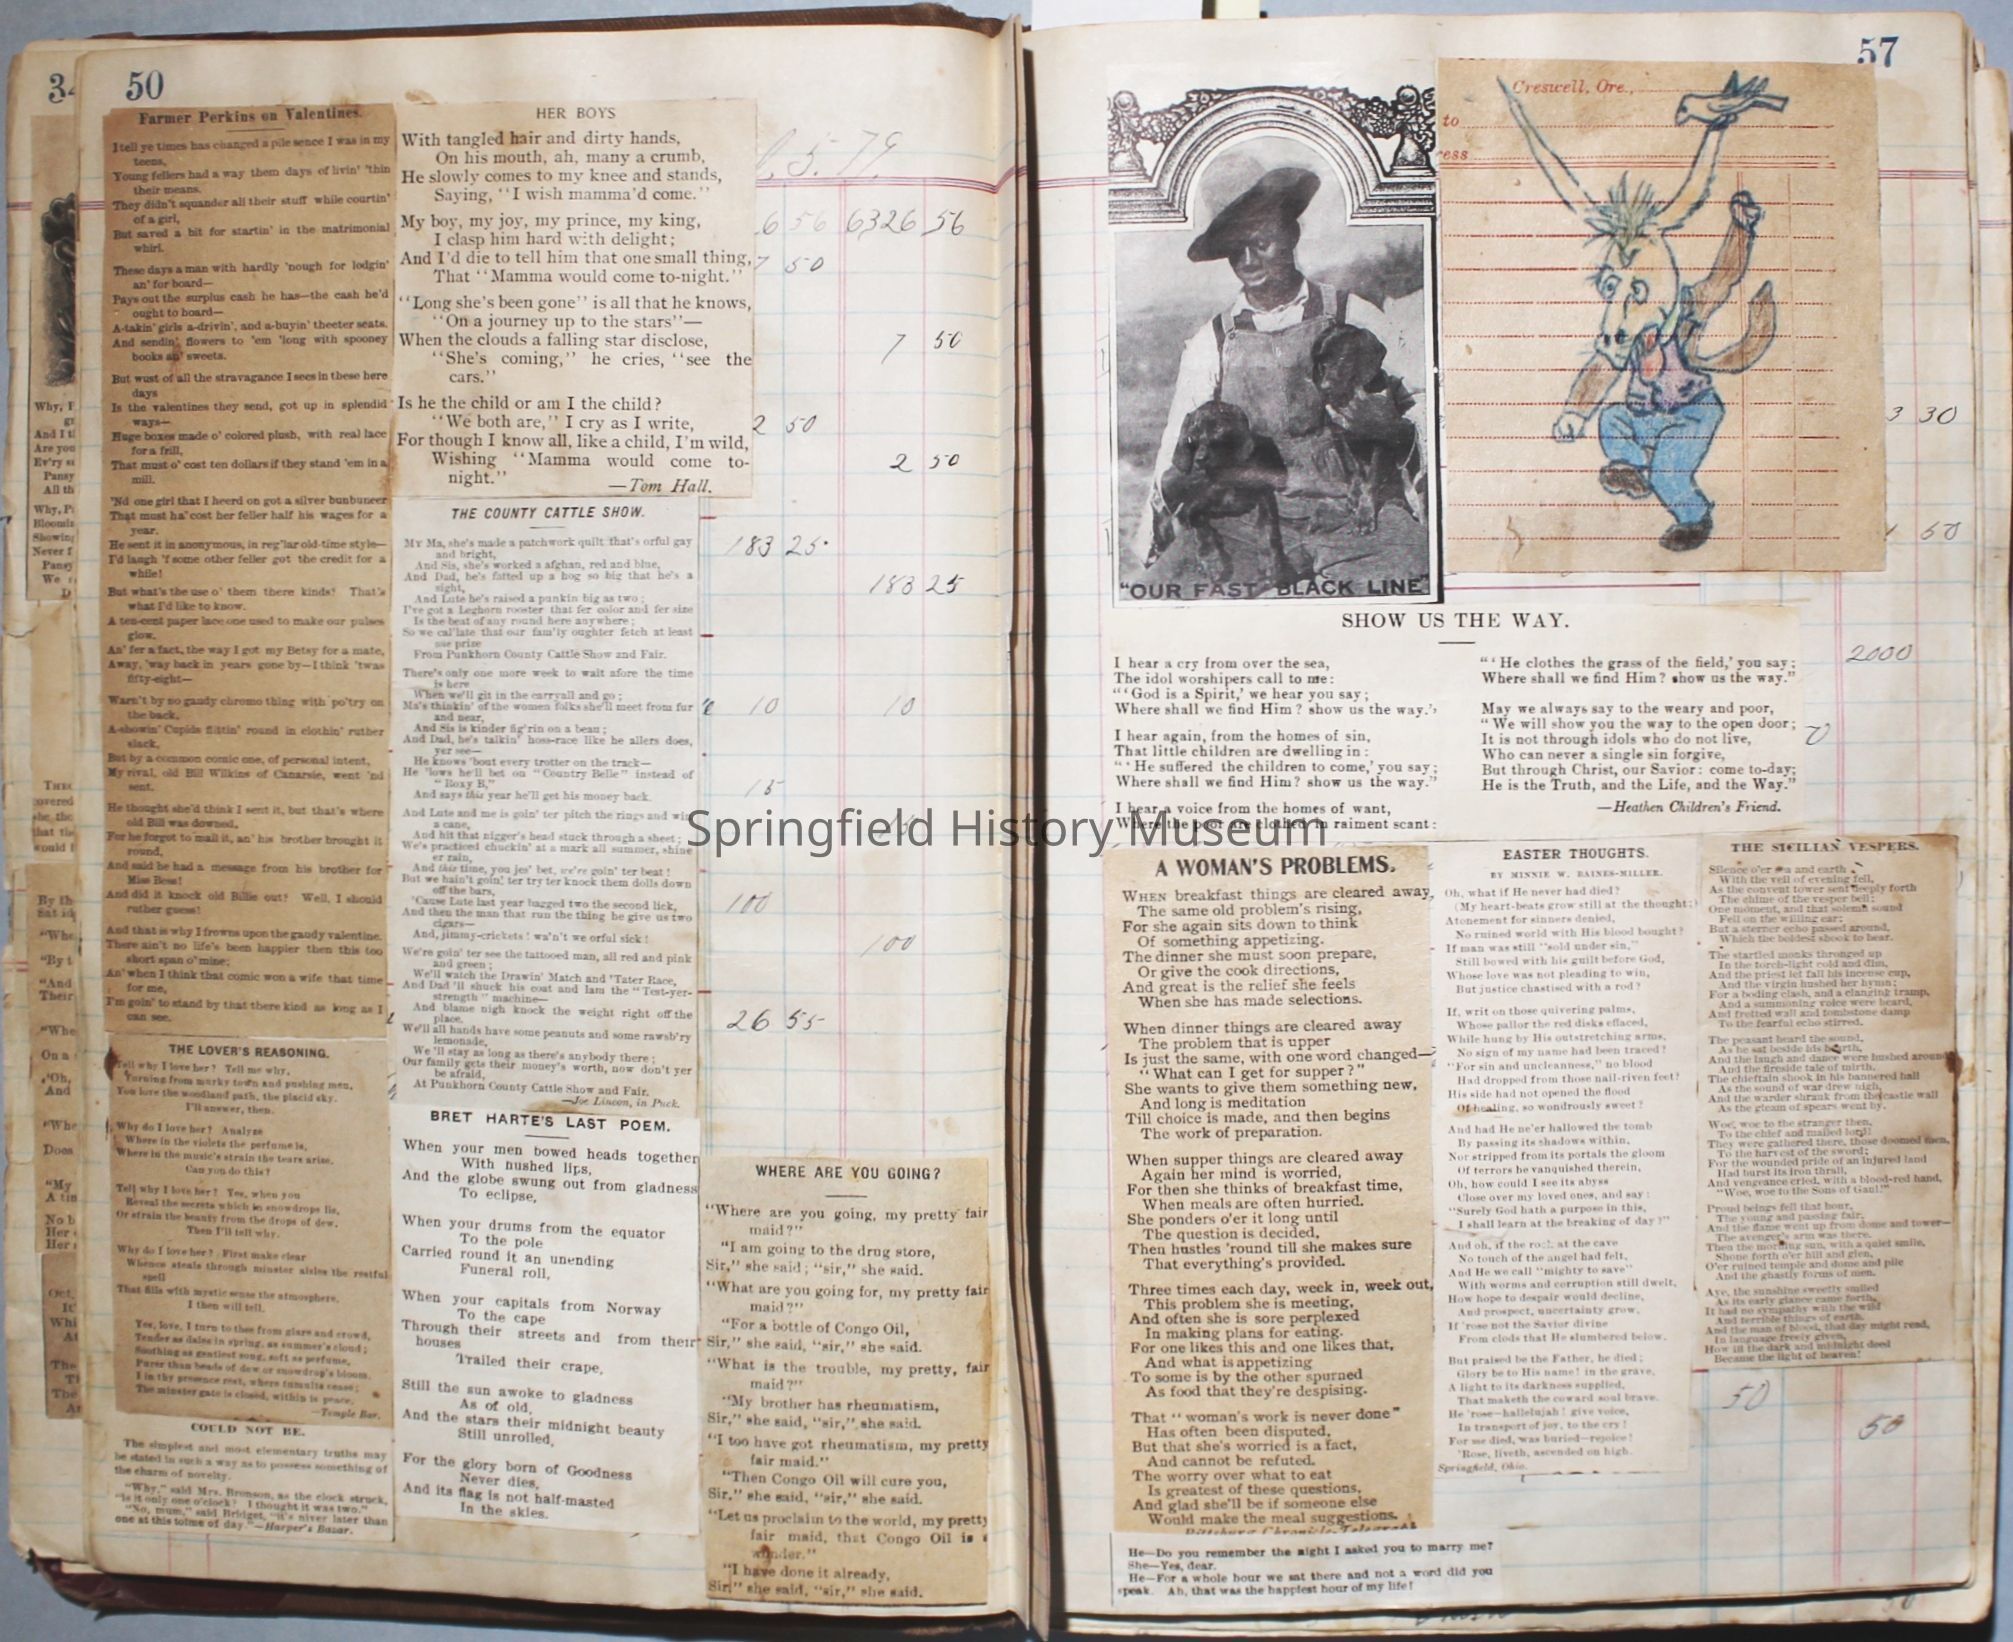 34
50
Farmer Perkins on Valentines.
I tell ye times has changed a pile sence I was in my
teens,
Young fellers had a way them days of livin' 'thin
their means.
They didn't squander all their stuff while courtin'
of a girl,
But saved a bit for startin' in the matrimonial
whirl.
These days a man with hardly 'nough for lodgin'
an' for board—
Pays out the surplus cash he has—the cash he'd
ought to hoard—
A-takin' girls a-drivin', and a-buyin' theeter seats,
And sendin' flowers to 'em 'long with spooney
books an' sweets.
But wust of all the stravagance I sees in these here
days
Is the valentines they send, got up in splendid
ways—
Huge boxes made o' colored plush, with real lace
for a frill,
That must o' cost ten dollars if they stand 'em in a
mill.
'Nd one girl that I heerd on got a silver bunbuneer
That must ha' cost her feller half his wages for a
year.
He sent it in anonymous, in reg'lar old-time style—
I'd laugh 'f some other feller got the credit for a
while!
But what's the use o' them there kinds? That's
what I'd like to know.
A ten-cent paper lace one used to make our pulses
glow.
An' fer a fact, the way I got my Betsy for a mate,
Away, 'way back in years gone by—I think 'twas
fifty-eight—
Warn't by no gaudy chromo thing with po'try on
the back,
A-showin' Cupids flittin' round in clothin' ruther
slack,
But by a common comic one, of personal intent,
My rival, old Bill Wilkins of Canarsie, went 'nd
sent.
He thought she'd think I sent it, but that's where
old Bill was downed,
For he forgot to mail it, an' his brother brought it
round,
And said he had a message from his brother for
Miss Bess!
And did it knock old Billie out? Well, I should
ruther guess!
And that is why I frowns upon the gaudy valentine.
There ain't no life's been happier then this too
short span o' mine;
An' when I think that comic won a wife that time
for me,
I'm goin' to stand by that there kind as long as I
can see.
THE LOVER'S REASONING.
Tell why I love her? Tell me why,
Turning from murky town and pushing men,
You love the woodland path, the placid sky.
I'll answer, then.
Why do I love her? Analyze
Where in the violets the perfume is,
Where in the music's strain the tears arise.
Can you do this?
Tell why I love her? Yes, when you
Reveal the secrets which in snowdrops lie,
Or strain the beauty from the drops of dew.
Then I'll tell why.
Why do I love her? First make clear
Whence steals through minster aisles the restful
spell
That fills with mystic sense the atmosphere,
I then will tell.
Yes, love, I turn to thee from glare and crowd,
Tender as dales in spring, as summer's cloud;
Soothing as gentlest song, soft as perfume,
Purer than beads of dew or snowdrop's bloom.
I in thy presence rest, where tumults cease;
The minster gate is closed, within is peace.
—Temple Bar.
COULD NOT BE.
The simplest and most elementary truths may
be stated in such a way as to possess something of
the charm of novelty.
"Why," said Mrs. Bronson, as the clock struck,
"is it only one o'clock? I thought it was two."
"No, mum," said Bridget, "it's niver later than
one at this toime of day."—Harper's Bazar.
HER BOYS
With tangled hair and dirty hands,
On his mouth, ah, many a crumb,
He slowly comes to my knee and stands,
Saying, "I wish mamma'd come."
My boy, my joy, my prince, my king,
I clasp him hard with delight;
And I'd die to tell him that one small thing,
That "Mamma would come to-night."
"Long she's been gone" is all that he knows,
"On a journey up to the stars"—
When the clouds a falling star disclose,
"She's coming," he cries, "see the
cars."
Is he the child or am I the child?
"We both are," I cry as I write,
For though I know all, like a child, I'm wild,
Wishing "Mamma would come to-
night."
—Tom Hall.
THE COUNTY CATTLE SHOW.
My Ma, she's made a patchwork quilt that's orful gay
and bright,
And Sis, she's worked a afghan, red and blue,
And Dad, he's fatted up a hog so big that he's a
sight,
And Lute he's raised a punkin big as two;
I've got a Leghorn rooster that fer color and fer size
Is the beat of any round here anywhere;
So we cal'late that our fam'ly oughter fetch at least
one prize
From Punkhorn County Cattle Show and Fair.
There's only one more week to wait afore the time
is here
When we'll git in the carryall and go;
Ma's thinkin' of the women folks she'll meet from fur
and near,
And Sis is kinder fig'rin on a beau;
And Dad, he's talkin' hoss-race like he allers does,
yer see—
He knows 'bout every trotter on the track—
He 'lows he'll bet on "Country Belle" instead of
"Roxy B,"
And says this year he'll get his money back.
And Lute and me is goin' ter pitch the rings and win
a cane,
And hit that nigger's head stuck through a sheet;
We's practiced chuckin' at a mark all summer, shine
er rain,
And this time, you jes' bet, we're goin' ter beat!
But we hain't goin' ter try ter knock them dolls down
off the bars,
'Cause Lute last year bagged two the second lick,
And then the man that run the thing he give us two
cigars—
And, jimmy-crickets! wa'n't we orful sick!
We're goin' ter see the tattooed man, all red and pink
and green;
We'll watch the Drawin' Match and 'Tater Race,
And Dad 'll shuck his coat and lam the "Test-yer-
strength" machine—
And blame nigh knock the weight right off the
place.
We'll all hands have some peanuts and some rawsb'ry
lemonade,
We'll stay as long as there's anybody there;
Our family gets their money's worth, now don't yer
be afraid,
At Punkhorn County Cattle Show and Fair.
—Joe Lincon, in Puck.
BRET HARTE'S LAST POEM.
When your men bowed heads together
With hushed lips,
And the globe swung out from gladness
To eclipse,
When your drums from the equator
To the pole
Carried round it an unending
Funeral roll,
When your capitals from Norway
To the cape
Through their streets and from their
houses
Trailed their crape,
Still the sun awoke to gladness
As of old,
And the stars their midnight beauty
Still unrolled,
For the glory born of Goodness
Never dies,
And its flag is not half-masted
In the skies.
5. 79.
6 56 6326 56
7 50
7 50
2 50
2 50
183 25
183 25
10 10
15
15
100
100
26 55
WHERE ARE YOU GOING?
"Where are you going, my pretty fair
maid?"
"I am going to the drug store,
Sir," she said; "sir," she said.
"What are you going for, my pretty fair
maid?"
"For a bottle of Congo Oil,
Sir," she said, "sir," she said.
"What is the trouble, my pretty, fair
maid?"
"My brother has rheumatism,
Sir," she said, "sir," she said.
"I too have got rheumatism, my pretty
fair maid."
"Then Congo Oil will cure you,
Sir," she said, "sir," she said.
"Let us proclaim to the world, my pretty
fair maid, that Congo Oil is a
wonder."
"I have done it already,
Sir," she said, "sir," she said.
57
"OUR FAST BLACK LINE"
Creswell, Ore.,
to
ess
3 30
50
2000
SHOW US THE WAY.
I hear a cry from over the sea,
The idol worshipers call to me:
"'God is a Spirit,' we hear you say;
Where shall we find Him? show us the way."
I hear again, from the homes of sin,
That little children are dwelling in:
"'He suffered the children to come,' you say;
Where shall we find Him? show us the way."
I hear a voice from the homes of want,
Where the poor are clothed in raiment scant:
"'He clothes the grass of the field,' you say;
Where shall we find Him? show us the way."
May we always say to the weary and poor,
"We will show you the way to the open door;
It is not through idols who do not live,
Who can never a single sin forgive,
But through Christ, our Savior: come to-day;
He is the Truth, and the Life, and the Way."
—Heathen Children's Friend.
Springfield History Museum
A WOMAN'S PROBLEMS.
WHEN breakfast things are cleared away,
The same old problem's rising,
For she again sits down to think
Of something appetizing.
The dinner she must soon prepare,
Or give the cook directions,
And great is the relief she feels
When she has made selections.
When dinner things are cleared away
The problem that is upper
Is just the same, with one word changed—
"What can I get for supper?"
She wants to give them something new,
And long is meditation
Till choice is made, and then begins
The work of preparation.
When supper things are cleared away
Again her mind is worried,
For then she thinks of breakfast time,
When meals are often hurried.
She ponders o'er it long until
The question is decided,
Then hustles 'round till she makes sure
That everything's provided.
Three times each day, week in, week out,
This problem she is meeting,
And often she is sore perplexed
In making plans for eating.
For one likes this and one likes that,
And what is appetizing
To some is by the other spurned
As food that they're despising.
That "woman's work is never done"
Has often been disputed,
But that she's worried is a fact,
And cannot be refuted.
The worry over what to eat
Is greatest of these questions,
And glad she'll be if someone else
Would make the meal suggestions.
Pittsburg Chronicle-Telegraph
He—Do you remember the night I asked you to marry me?
She—Yes, dear.
He—For a whole hour we sat there and not a word did you
speak. Ah, that was the happiest hour of my life!
EASTER THOUGHTS.
BY MINNIE W. BAINES-MILLER.
Oh, what if He never had died?
(My heart-beats grow still at the thought;)
Atonement for sinners denied,
No ruined world with His blood bought?
If man was still "sold under sin,"
Still bowed with his guilt before God,
Whose love was not pleading to win,
But justice chastised with a rod?
If, writ on those quivering palms,
Whose pallor the red disks effaced,
While hung by His outstretching arms,
No sign of my name had been traced?
"For sin and uncleanness," no blood
Had dropped from those nail-riven feet?
His side had not opened the flood
Of healing, so wondrously sweet?
And had He ne'er hallowed the tomb
By passing its shadows within,
Nor stripped from its portals the gloom
Of terrors he vanquished therein,
Oh, how could I see its abyss
Close over my loved ones, and say:
"Surely God hath a purpose in this,
I shall learn at the breaking of day?"
And oh, if the rock at the cave
No touch of the angel had felt,
And He we call "mighty to save"
With worms and corruption still dwelt,
How hope to despair would decline,
And prospect, uncertainty grow,
If 'rose not the Savior divine
From clods that He slumbered below.
But praised be the Father, he died;
Glory be to His name! in the grave,
A light to its darkness supplied,
That maketh the coward soul brave.
He 'rose—hallelujah! give voice,
In transport of joy, to the cry!
For me died, was buried—rejoice!
'Rose, liveth, ascended on high.
Springfield, Ohio.
THE SICILIAN VESPERS.
Silence o'er sea and earth
With the veil of evening fell,
As the convent tower sent deeply forth
The chime of the vesper bell;
One moment, and that solemn sound
Fell on the willing ear;
But a sterner echo passed around,
Which the boldest shook to hear.
The startled monks thronged up
In the torch-light cold and dim,
And the priest let fall his incense cup,
And the virgin hushed her hymn;
For a boding clash, and a clanging tramp,
And a summoning voice were heard,
And fretted wall and tombstone damp
To the fearful echo stirred.
The peasant heard the sound,
As he sat beside his hearth,
And the laugh and dance were hushed around
And the fireside tale of mirth,
The chieftain shook in his bannered hall
As the sound of war drew nigh,
And the warder shrank from the castle wall
As the gleam of spears went by.
Woe, woe to the stranger then,
To the chief and mailed lord!
They were gathered there, those doomed men,
To the harvest of the sword;
For the wounded pride of an injured land
Had burst its iron thrall,
And vengeance cried, with a blood-red hand,
"Woe, woe to the Sons of Gaul!"
Proud beings fell that hour,
The young and passing fair,
And the flame went up from dome and tower—
The avenger's arm was there.
Then the morning sun, with a quiet smile,
Shone forth o'er hill and glen,
O'er ruined temple and dome and pile
And the ghastly forms of men.
Aye, the sunshine sweetly smiled
As its early glance came forth,
It had no sympathy with the wild
And terrible things of earth,
And the man of blood, that day might read,
In language freely given,
How ill the dark and midnight deed
Became the light of heaven!
50
50